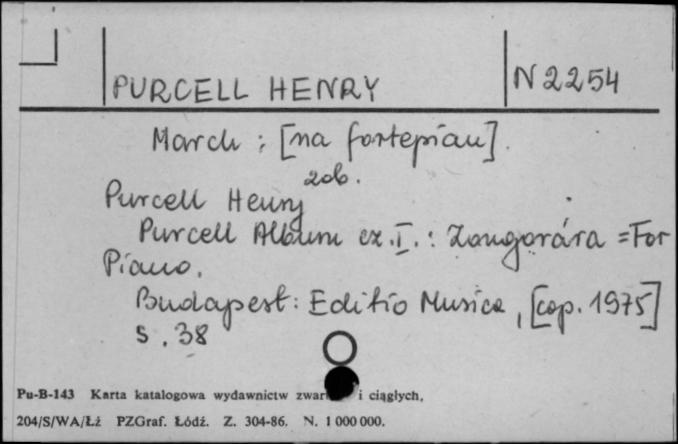 PURCELL HENRY N 2254
March : [na fortepian].
zob.
Purcell Henry
Purcell Album cz. I. : Zongorára = For
Piano.
Budapest : Editio Musica, [cop. 1975]
s. 38
Pu-B-143 Karta katalogowa wydawnictw zwar i ciągłych,
204/S/WA/Łż PZGraf. Łódź. Z. 304-86. N. 1 000 000.